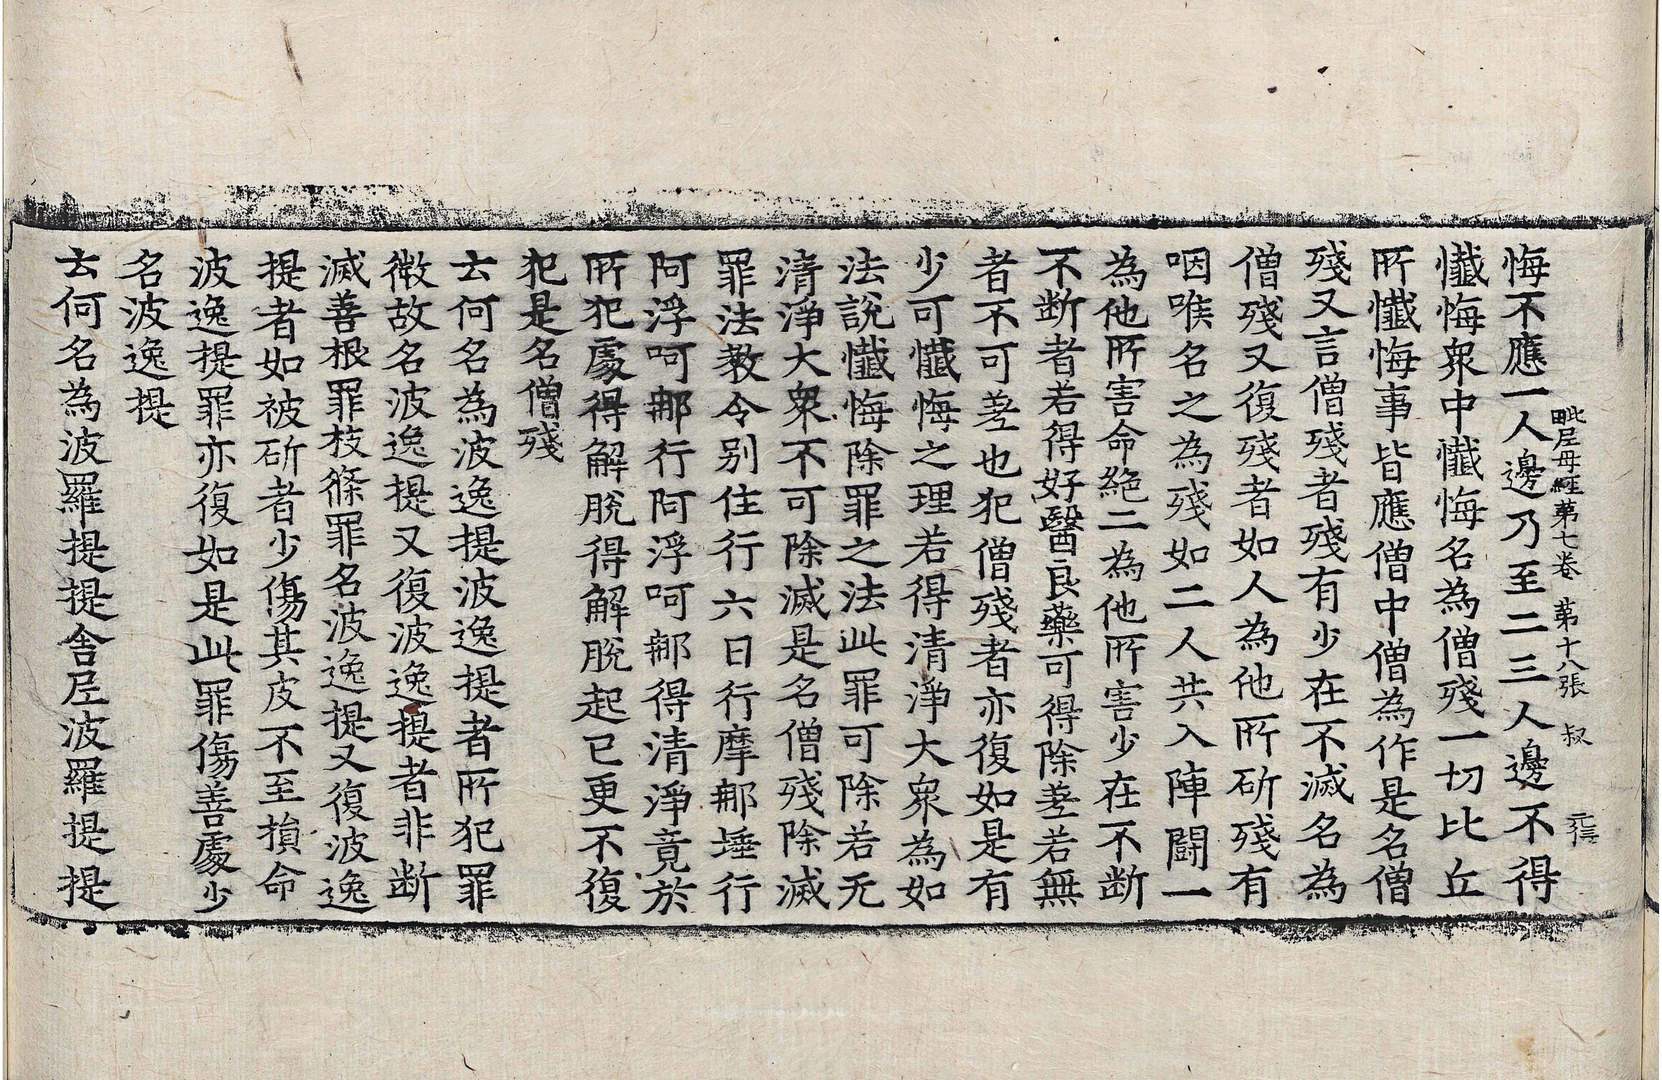 毗尼母經第七卷 第十八張 叔
悔不應一人邊乃至二三人邊不得
懺悔衆中懺悔名為僧殘一切比丘
所懺悔事皆應僧中僧為作是名僧
殘又言僧殘者殘有少在不滅名為
僧殘又復殘者如人為他所斫殘有
咽喉名之為殘如二人共入陣鬪一
為他所害命絶二為他所害少在不断
不断者若得好醫良藥可得除差若無
者不可差也犯僧殘者亦復如是有
少可懺悔之理若得清淨大衆為如
法說懺悔除罪之法此罪可除若无
清淨大衆不可除滅是名僧殘除滅
罪法教令别住行六日行摩那埵行
阿浮呵那行阿浮呵那得清淨竟於
所犯處得解脫得解脫起已更不復
犯是名僧殘
云何名為波逸提波逸提者所犯罪
微故名波逸提又復波逸提者非断
滅善根罪枝條罪名波逸提又復波逸
提者如被斫者少傷其皮不至損命
波逸提罪亦復如是此罪傷善處少
名波逸提
云何名為波羅提提舍尼波羅提提